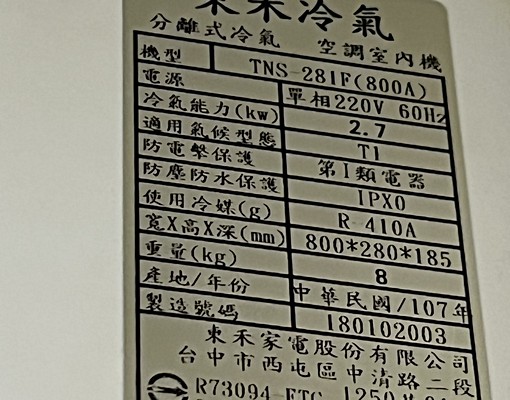 東禾冷氣
分離式冷氣 空調室內機
機型 TNS-281F(800A)
電源 單相220V 60Hz
冷氣能力(kw) 2.7
適用氣候型態 T1
防電擊保護 第I類電器
防塵防水保護 IPX0
使用冷媒(g) R-410A
寬X高X深(mm) 800*280*185
重量(kg) 8
產地/年份 中華民國/107年
製造號碼 180102003
東禾家電股份有限公司
台中市西屯區中清路二段
R73094-ETC 1250